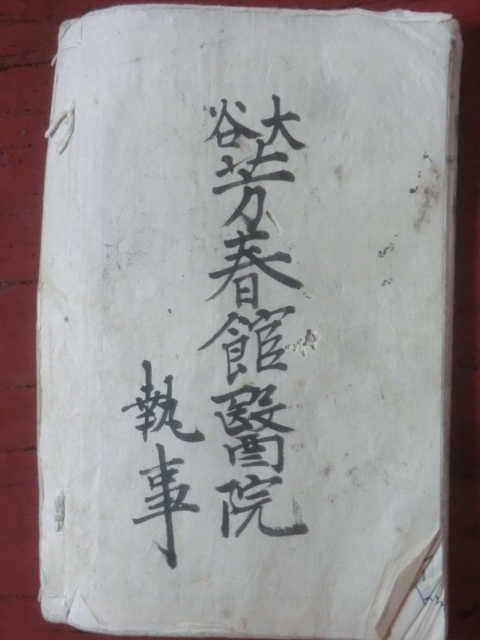 大谷
芳春館醫院
執事